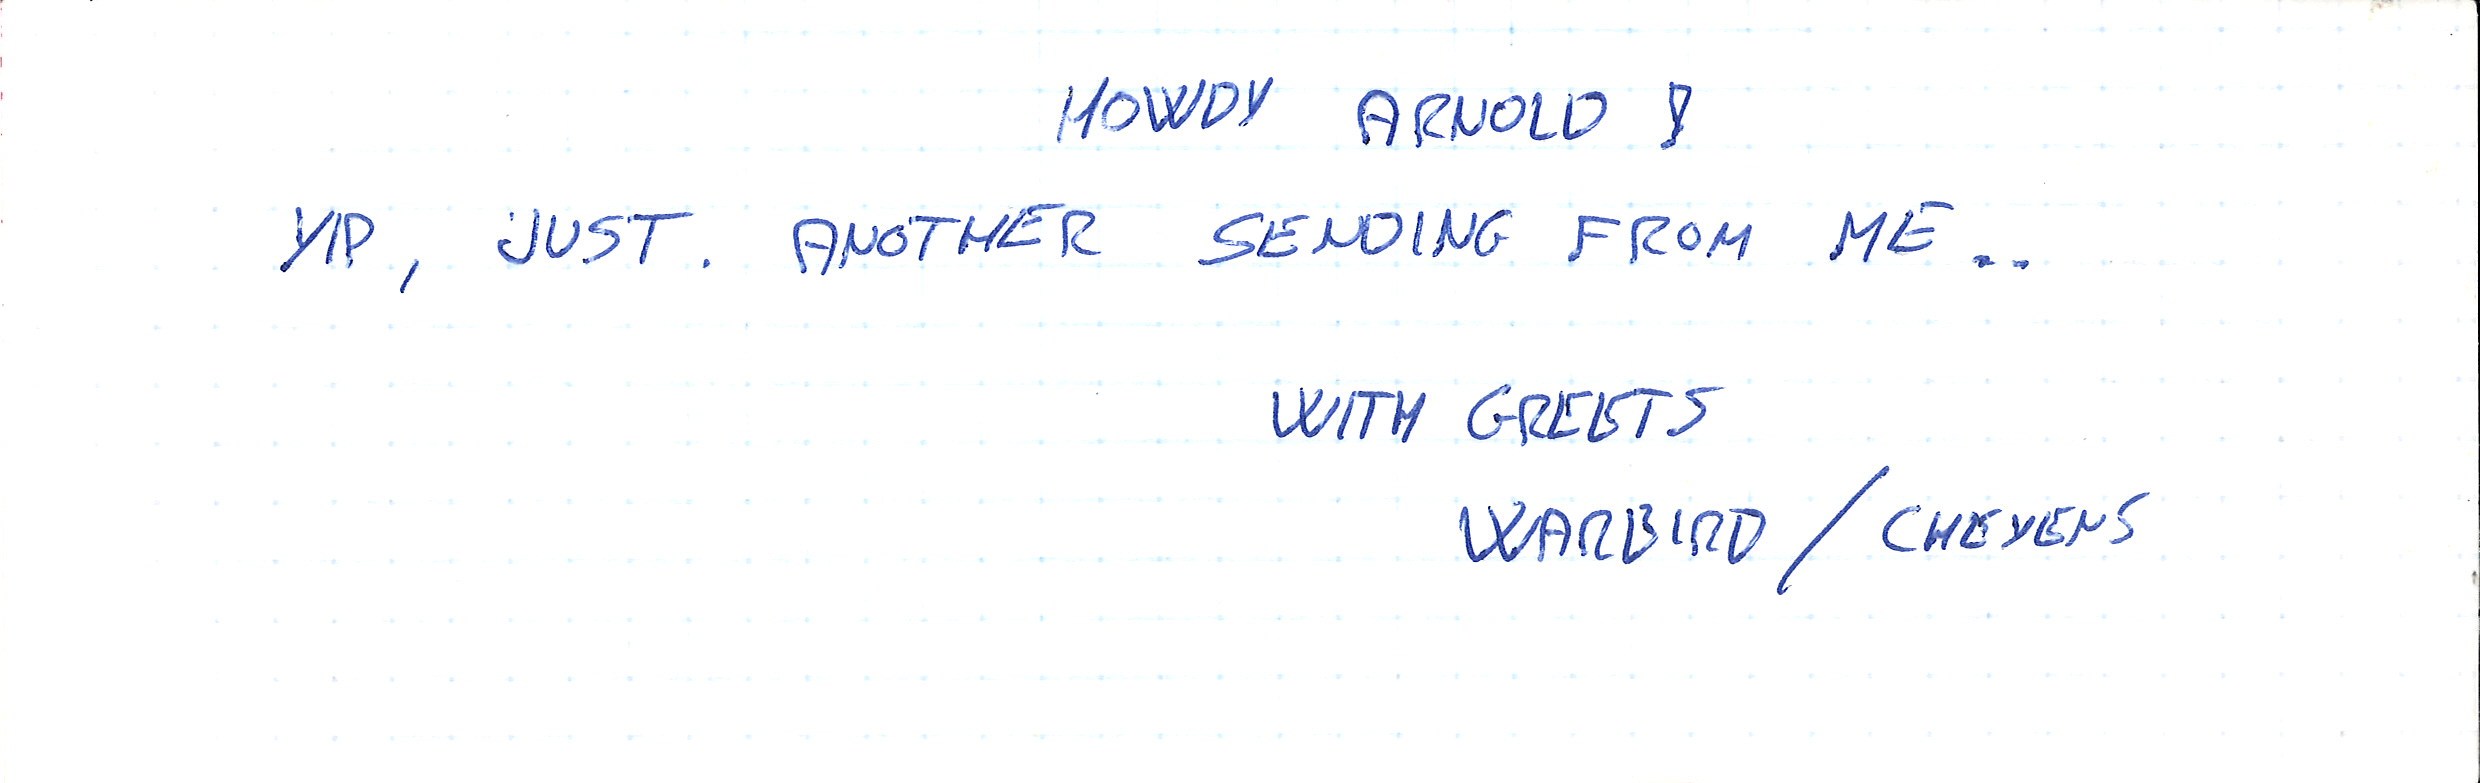 HOWDY ARNOLD !
YIP, JUST. ANOTHER SENDING FROM ME..
WITH GREETS
WARBIRD / CHEYENS